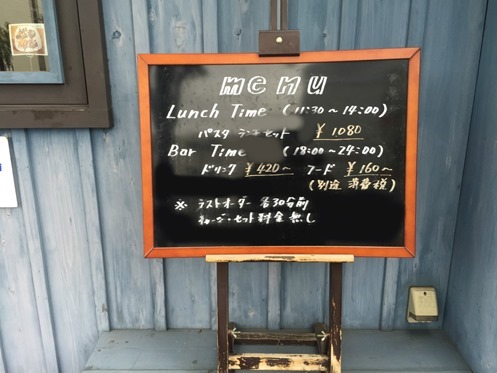 menu
Lunch Time (11:30〜14:00)
パスタ ランチセット ¥1080
Bar Time (18:00〜24:00)
ドリンク ¥420〜 フード ¥160〜
(別途 消費税)
※ ラストオーダー 各30分前
チャージ・セット料金 無し